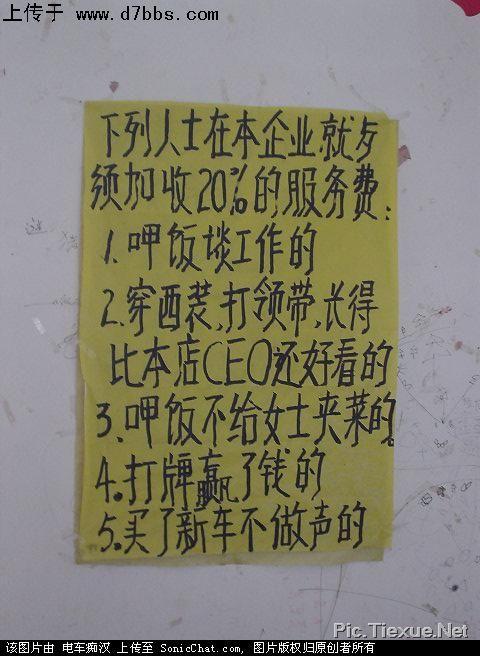 上传于 www.d7bbs.com
下列人士在本企业就歺
须加收20%的服务费:
1.呷饭谈工作的
2.穿西装,打领带,长得
比本店CEO还好看的
3、呷饭不给女士夹菜的。
4.打牌赢了钱的
5.买了新车不做声的
Pic.Tiexue.Net
该图片由 电车痴汉 上传至 SonicChat.com, 图片版权归原创者所有